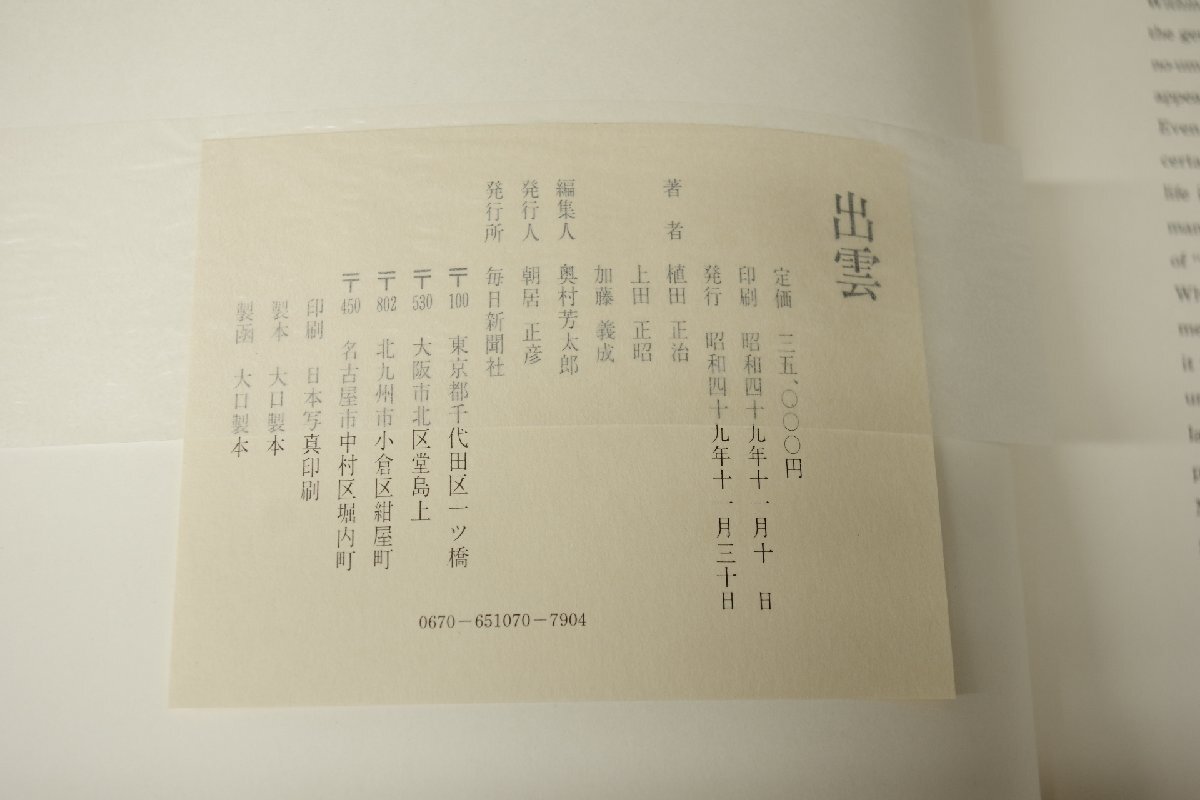 出雲
定価 三五、〇〇〇円
印刷 昭和四十九年十一月十 日
発行 昭和四十九年十一月三十日
著 者 植田 正治
上田 正昭
加藤 義成
編集人 奥村芳太郎
発行人 朝居 正彦
発行所 毎日新聞社
〒100 東京都千代田区一ツ橋
〒530 大阪市北区堂島上
〒802 北九州市小倉区紺屋町
〒450 名古屋市中村区堀内町
印刷 日本写真印刷
製本 大口製本
製函 大口製本
0670-651070-7904
the
Even
life
of "
it